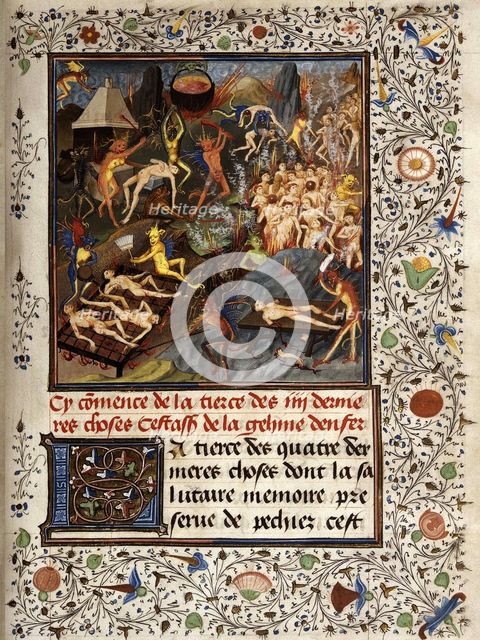 Cy cõmence de la tierce des iiij dernie
res choses Cestass de la gehine denfer
La tierce des quatre der
nieres choses dont la sa
lutaire memoire pre
serve de pechier cest